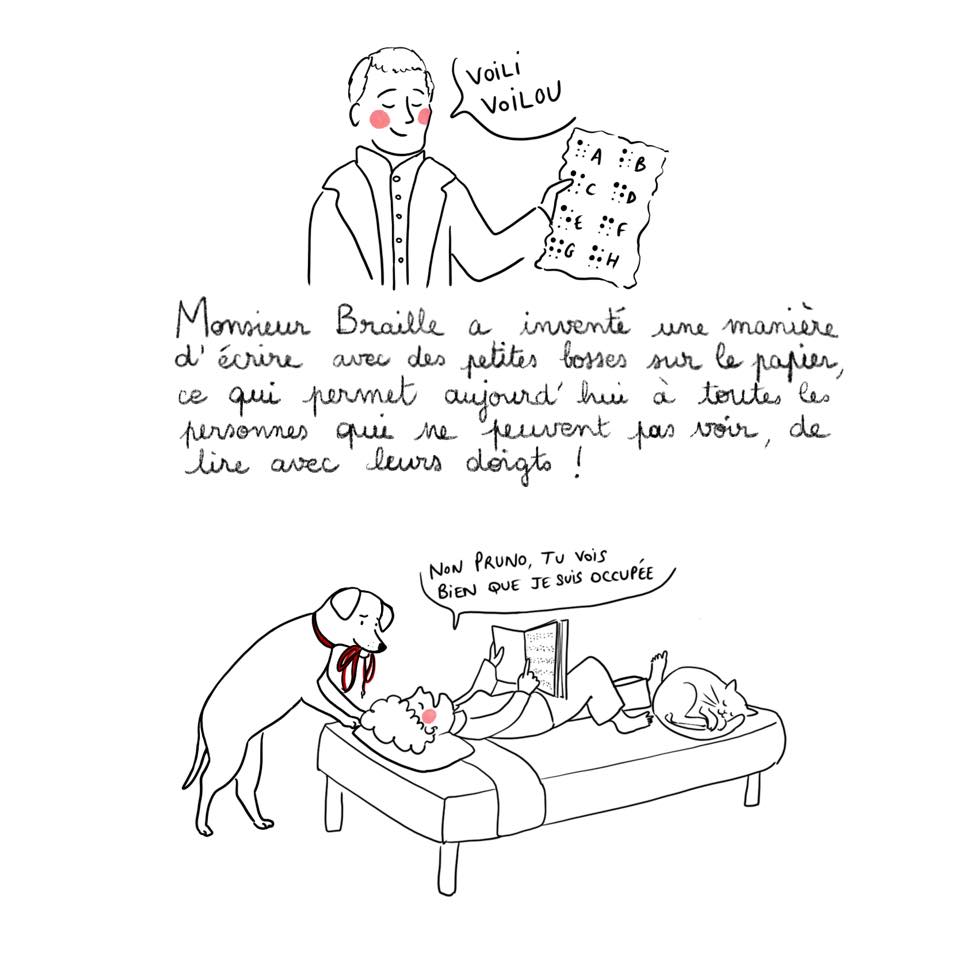 VOiLi
VOiLOU
A B
C D
E F
G H
Monsieur Braille a inventé une manière
d'écrire avec des petites bosses sur le papier,
ce qui permet aujourd'hui à toutes les
personnes qui ne peuvent pas voir, de
lire avec leurs doigts !
NON PRUNO, TU VOiS
BiEN QUE JE SUiS OCCUPÉE